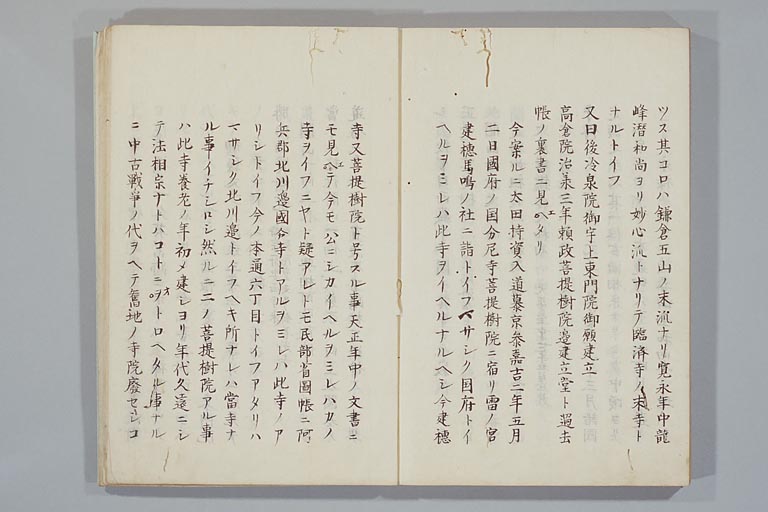 ツス其コロハ鎌倉五山ノ末流ナリ寛永年中龍
峰潜和尚ヨリ妙心流トナリテ臨済寺ノ末寺ト
ナルトイフ
又曰後冷泉院御宇上東門院御願建立三月
高倉院治承三年頼政菩提樹院邉建立堂ト過去
帳ノ裏書ニ見ヘエタリ
今案ルニ太田持資入道慕京参嘉吉二年五月
二日國府ノ国分尼寺菩提樹院ニ宿リ雷ノ宮
建穂馬鳴ノ社ニ詣トイフマサシク国府トイ
ヘルヲミレハ此寺ヲイヘルナルヘシ今建穂
寺又菩提樹院ト号スル事天正年中ノ文書ニ
モ見ヘエテ今モ公ニシカイヘルヲミレハカノ
寺ヲイフニヤト疑アレトモ民部省圖帳ニ阿
兵郡北川邉國分寺トアルヲミレハ此寺ノア
リシトイフ今ノ本通六丁目トイフアタリハ
マサシク北川邉トイフヘキ所ナレハ當寺ナ
ル事イチシロシ然ルニ二ノ菩提樹院アル事
ハ此寺養老ノ年初メ建シヨリ年代久遠ニシ
テ法相宗ナトハコトニヲオトロヘタル事ナル
ニ中古戦争ノ代ヲヘテ舊地ノ寺院廢セシコ